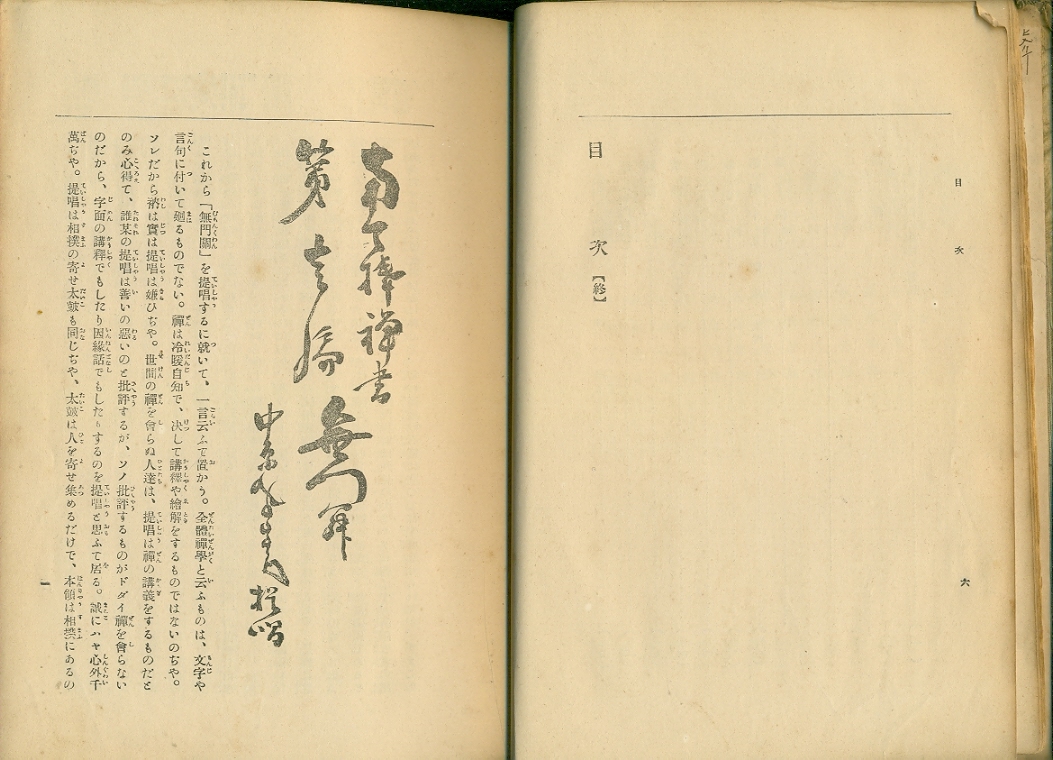 目次
六
目次【終】
南天棒禪書
第壹編 無門關
中原 提唱
これから「無門關」を提唱するに就いて、一言云ふて置かう。全體禪學と云ふものは、文字や
言句に付いて廻るものでない。禪は冷暖自知で、決して講釋や繪解をするものではないのぢや。
ソレだから衲は實は提唱は嫌ひぢや。世間の禪を會らぬ人達は、提唱は禪の講義をするものだと
のみ心得て、誰某の提唱は善いの惡いのと批評するが、ソノ批評するものがドダイ禪を會らない
のだから、字面の講釋でもしたり因緣話でもしたりするのを提唱と思ふて居る。誠にハヤ心外千
萬ぢや。提唱は相撲の寄せ太皷も同じぢや、太皷は人を寄せ集めるだけで、本領は相撲にあるの
一